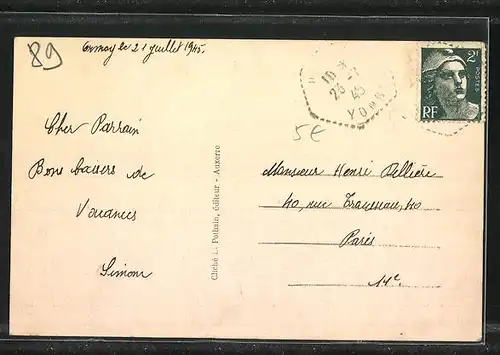 89
Ormoy le 21 juillet 1945.
Cher Parrain
Bons baisers de
Vacances
Simone
Cliché L. Pothain, éditeur - Auxerre
18 *
23 -7
45
YONNE
5€
2F
POSTES
RF
Monsieur Henri Pellière
40, rue Trousseau, 40
Paris
11e